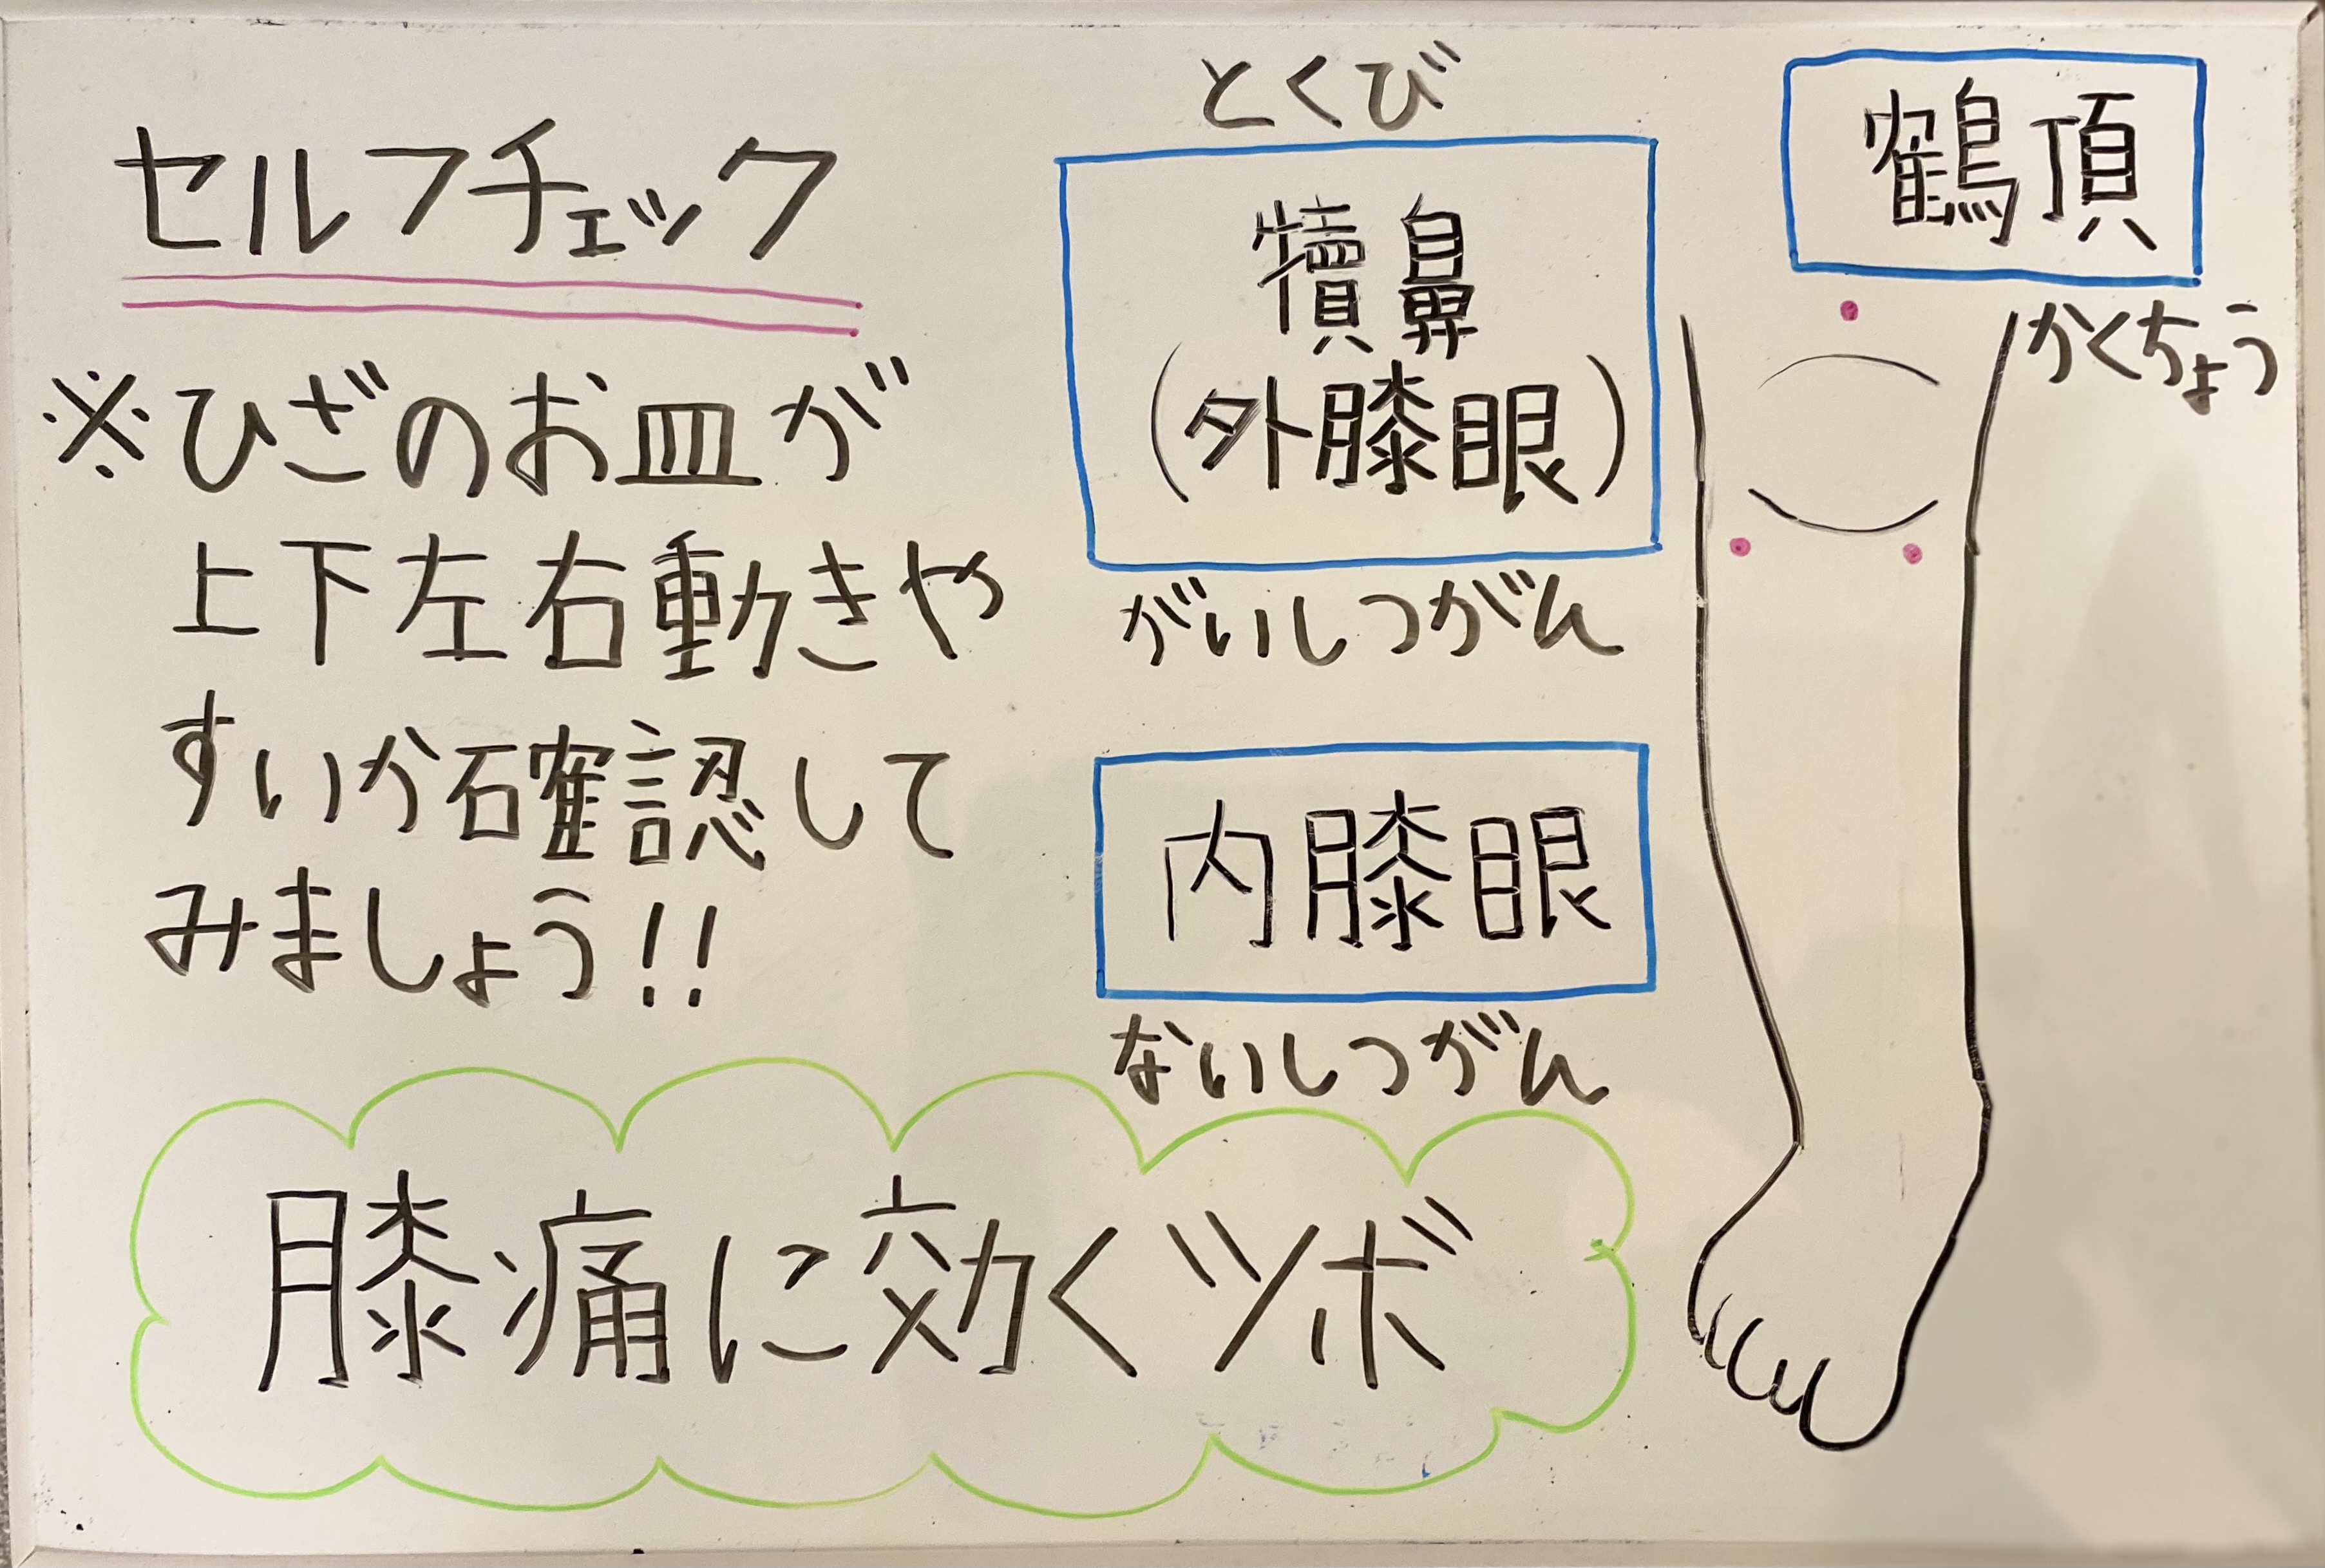 セルフチェック
※ひざのお皿が
上下左右動きや
すいか確認して
みましょう!!
とくび
犢鼻
(外膝眼)
がいしつがん
内膝眼
ないしつがん
鶴頂
かくちょう
膝痛に効くツボ